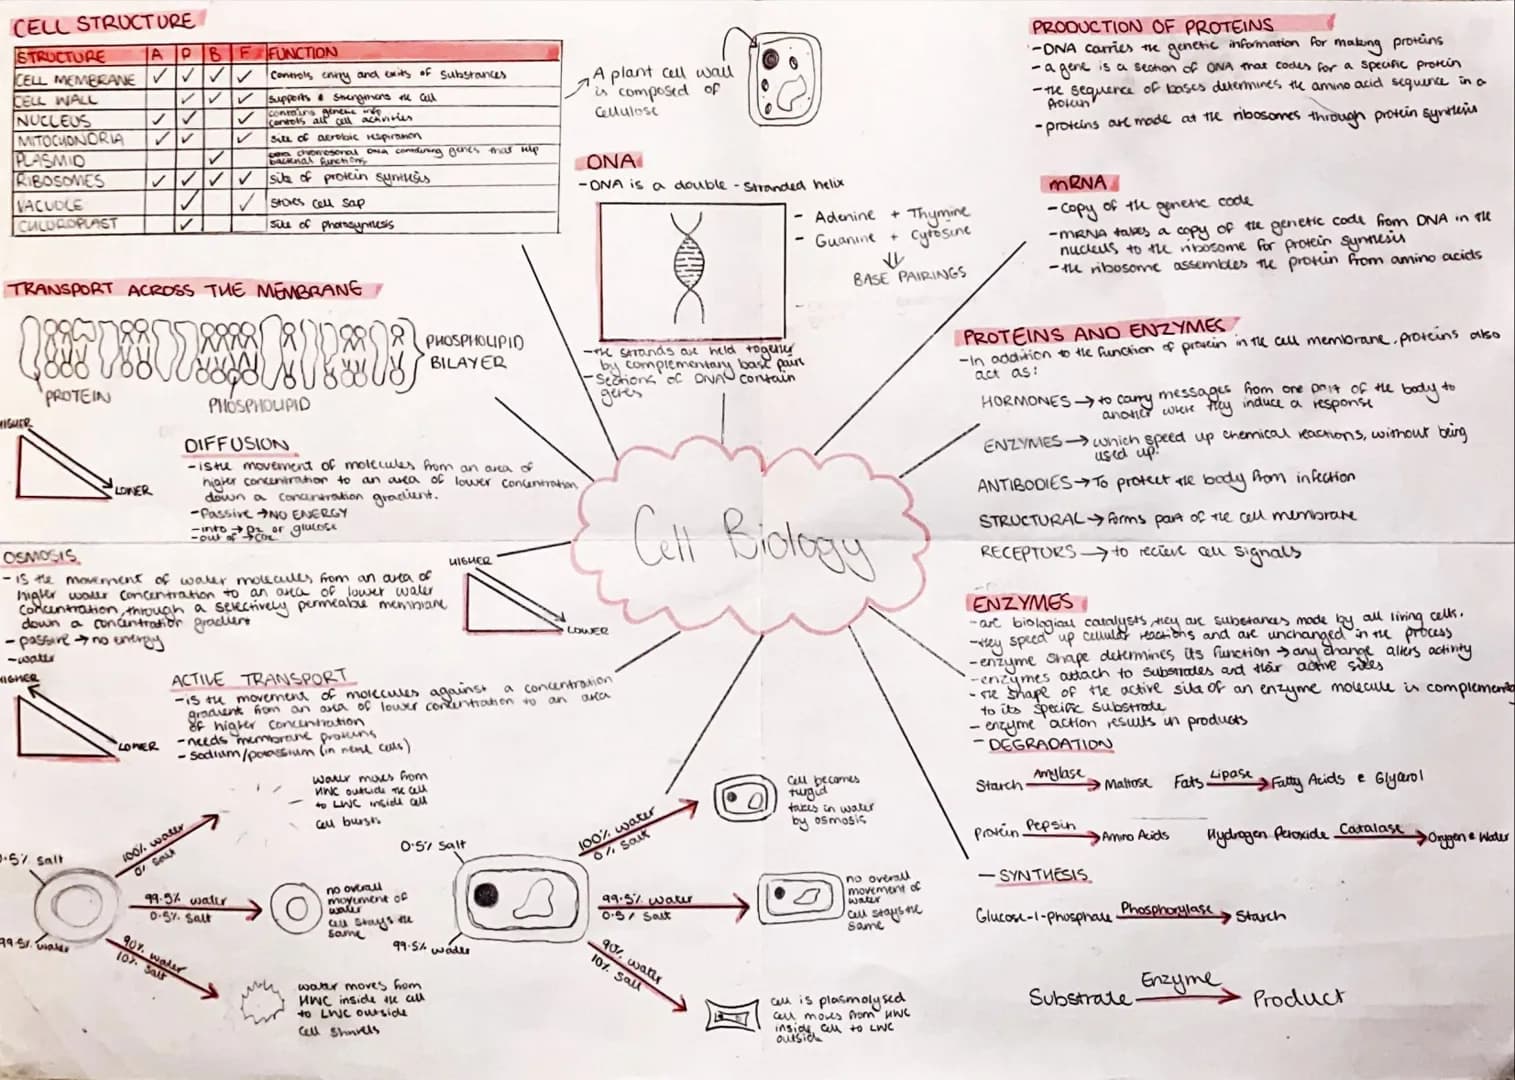 CELL STRUCTURE
STRUCTURE A P B F FUNCTION
CELL MEMBRANE ✓ ✓ ✓ ✓ Controls entry and exits of Substances
CELL WALL ✓ ✓ ✓ supports & strengthens the cell
NUCLEUS ✓ ✓ ✓ contains genetic info
controls all cell activities
MITOCHONDRIA ✓ ✓ ✓ site of aerobic respiration
PLASMID ✓ extra chromosomal DNA containing genes that help
bacterial functions
RIBOSOMES ✓ ✓ ✓ ✓ site of protein synthesis
VACUOLE ✓ ✓ stores cell sap
CHLOROPLAST ✓ site of photosynthesis
A plant cell wall
is composed of
cellulose
DNA
- DNA is a double - stranded helix
- Adenine + Thymine
- Guanine + Cytosine
BASE PAIRINGS
- the strands are held together
by complementary base pairs
- Sections of DNA contain
genes
PRODUCTION OF PROTEINS
- DNA carries the genetic information for making proteins
- a gene is a section of DNA that codes for a specific protein
- the sequence of bases determines the amino acid sequence in a
protein
- proteins are made at the ribosomes through protein synthesis
mRNA
- copy of the genetic code
- mRNA takes a copy of the genetic code from DNA in the
nucleus to the ribosome for protein synthesis
- the ribosome assembles the protein from amino acids
TRANSPORT ACROSS THE MEMBRANE
PHOSPHOLIPID
BILAYER
PROTEIN
PHOSPHOLIPID
HIGHER
LOWER
DIFFUSION
- is the movement of molecules from an area of
higher concentration to an area of lower concentration
down a concentration gradient.
- Passive → NO ENERGY
- into → O2 or glucose
- out of → CO2
OSMOSIS
- is the movement of water molecules from an area of
higher water concentration to an area of lower water
concentration, through a selectively permeable membrane
down a concentration gradient
- passive → no energy
- water
HIGHER
LOWER
ACTIVE TRANSPORT
- is the movement of molecules against a concentration
gradient from an area of lower concentration to an area
of higher concentration
- needs membrane proteins
- sodium/potassium (in nerve cells)
HIGHER
LOWER
Cell Biology
PROTEINS AND ENZYMES
- In addition to the function of protein in the cell membrane, proteins also
act as:
HORMONES → to carry messages from one part of the body to
another where they induce a response
ENZYMES → which speed up chemical reactions, without being
used up.
ANTIBODIES → To protect the body from infection
STRUCTURAL → forms part of the cell membrane
RECEPTORS → to recieve cell signals
ENZYMES
- are biological catalysts, they are substances made by all living cells.
- they speed up cellular reactions and are unchanged in the process
- enzyme shape determines its function → any change alters activity
- enzymes attach to substrates and their active sites
- the shape of the active site of an enzyme molecule is complementary
to its specific substrate
- enzyme action results in products
- DEGRADATION
Starch Amylase → Maltose Fats Lipase → Fatty Acids & Glycerol
Protein Pepsin → Amino Acids Hydrogen Peroxide Catalase → Oxygen & Water
- SYNTHESIS
Glucose-1-phosphate Phosphorylase → Starch
Substrate Enzyme → Product
0.5% Salt
99.5% water
100% water
0% Salt
water moves from
HWC outside the cell
to LWC inside cell
cell bursts
99.5% water
0.5% Salt
no overall
movement of
water
cell stays the
same
90% water
10% Salt
water moves from
HWC inside the cell
to LWC outside
cell shrivels
0.5% Salt
99.5% water
100% water
0% Salt
Cell becomes
turgid
takes in water
by osmosis
99.5% water
0.5% Salt
no overall
movement of
water
cell stays the
same
90% water
10% Salt
cell is plasmolysed
cell moves from HWC
inside cell to LWC
outside